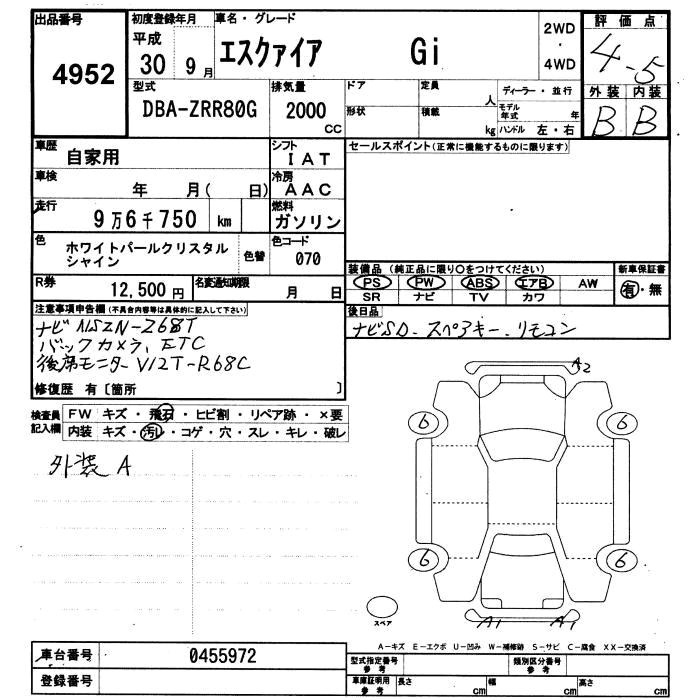 出品番号 4952
初度登録年月 平成 30 9月
車名・グレード エスクァイア Gi
2WD ・ 4WD
評価点 4-5
外装 内装
B B
型式 DBA-ZRR80G
排気量 2000 CC
ドア 定員 人
形状 積載 kg
ディーラー・並行
モデル年式 年
ハンドル 左・右
車歴 自家用
シフト IAT
セールスポイント(正常に機能するものに限ります)
車検 年 月( 日)
冷房 AAC
走行 9万6千750 km
燃料 ガソリン
色 ホワイトパールクリスタルシャイン
色替
色コード 070
装備品(純正品に限り○をつけてください)
新車保証書
PS PW ABS エアB AW
有・無
SR ナビ TV カワ
R券 12,500円
名変通知期限 月 日
後日品
ナビSD.スペアキー.リモコン
注意事項申告欄(不具合内容等は具体的に記入して下さい)
ナビNSZN-Z68T
バックカメラ、ETC
後席モニターV12T-R68C
修復歴 有〔箇所 〕
検査員記入欄
FW キズ・飛石・ヒビ割・リペア跡・×要
内装 キズ・汚レ・コゲ・穴・スレ・キレ・破レ
外装A
A2
6 6
6 6
スペア
A1 A1
A-キズ E-エクボ U-凹み W-補修跡 S-サビ C-腐食 XX-交換済
車台番号 0455972
登録番号
型式指定番号 参考
類別区分番号 参考
車庫証明用 参考
長さ cm 幅 cm 高さ cm